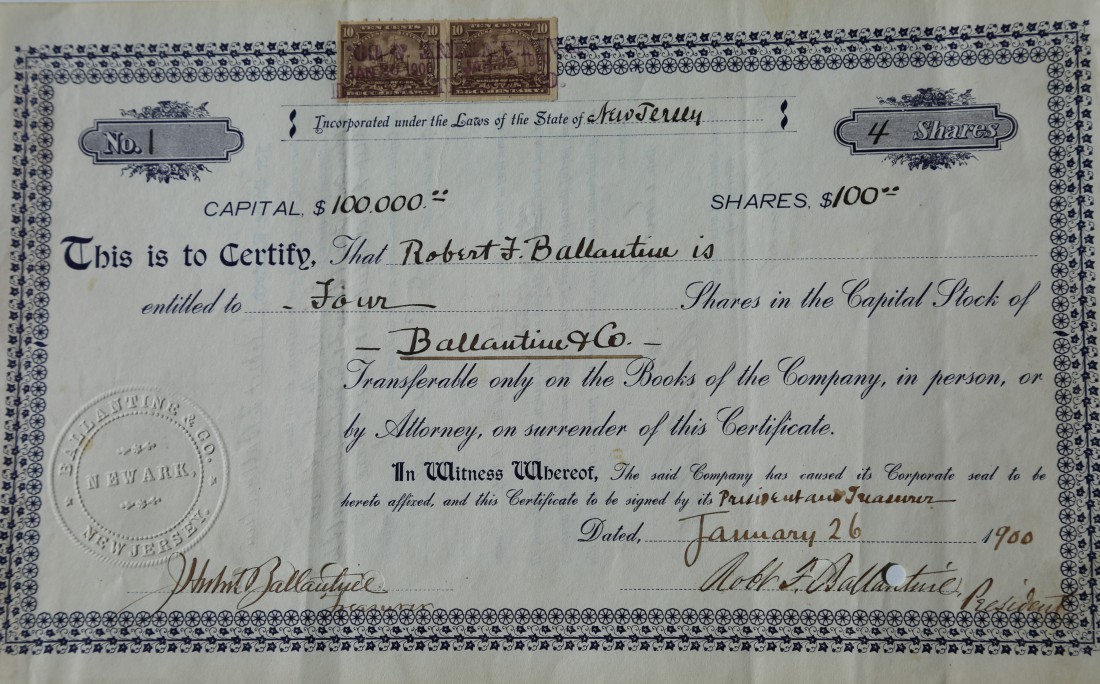 TEN CENTS TEN CENTS
10 10 10 10
DOCUMENTARY DOCUMENTARY
Incorporated under the Laws of the State of New Jersey
No. 1
4 Shares
CAPITAL, $ 100,000.00
SHARES, $100.00
This is to Certify, That Robert F. Ballantine is
entitled to - Four Shares in the Capital Stock of
- Ballantine & Co. -
Transferable only on the Books of the Company, in person, or
by Attorney, on surrender of this Certificate.
In Witness Whereof, The said Company has caused its Corporate seal to be
hereto affixed, and this Certificate to be signed by its President and Treasurer
Dated, January 26 1900
BALLANTINE & CO.
NEWARK.
NEW JERSEY.
J Herbert Ballantine
Treasurer
Robt F. Ballantine,
President